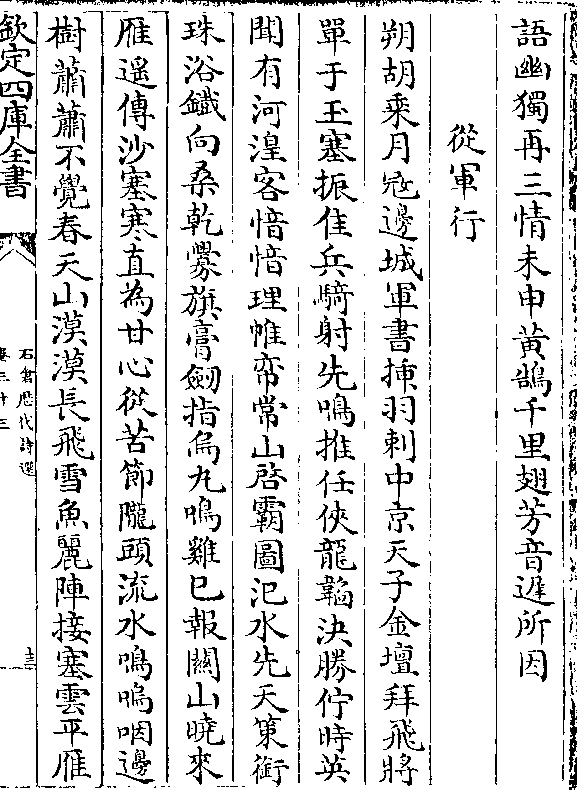 語幽獨再三情未申黃鵠千里翅芳音遲所因
從軍行
朔胡乘月寇邊城軍書揷羽刺中京天子金壇拜飛將
單于玉塞振佳兵騎射先鳴推任俠龍韜決勝佇時英
聞有河湟客愔愔理帷帟常山啓霸圖汜水先天策銜
珠浴鐵向桑乾釁旗膏劒指烏丸鳴雞已報關山曉來
雁遥傳沙塞寒直為甘心從苦節隴頭流水鳴嗚咽邊
樹蕭蕭不覺春天山漠漠長飛雪魚麗陣接塞雲平雁
欽定四庫全書
石倉歴代詩選
卷二十三